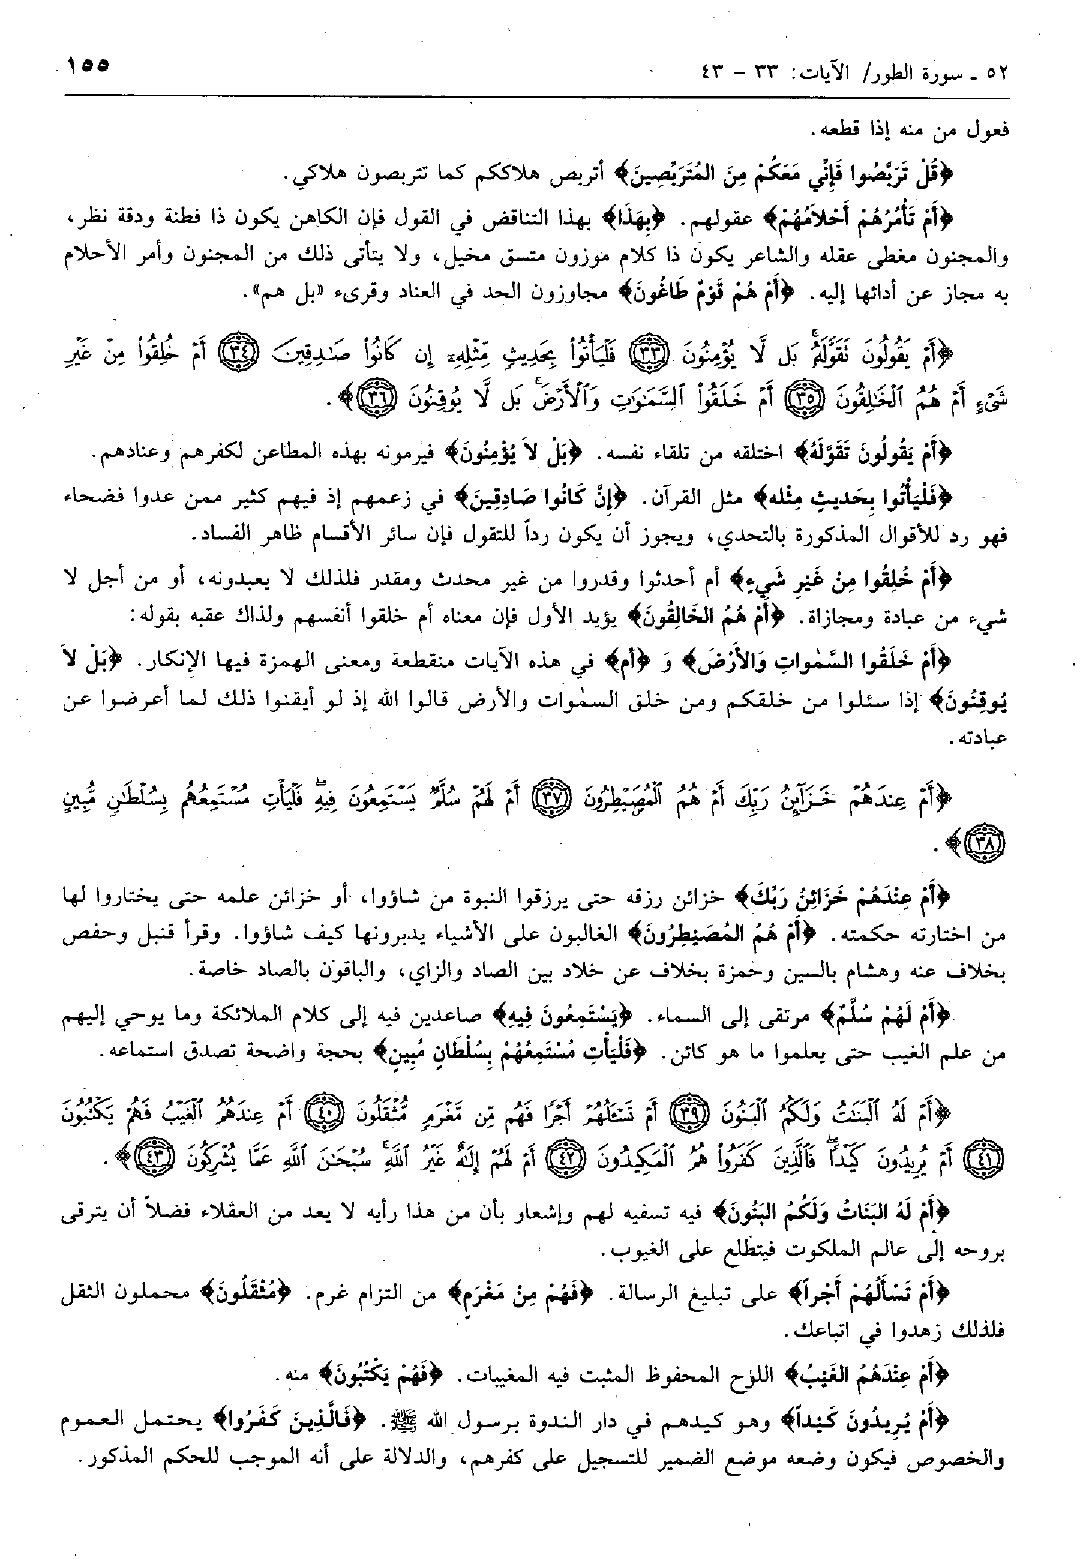 ٥٢ ـ سورة الطور/ الآيات: ٣٣ – ٤٣
١٥٥
فعول من منه إذا قطعه.
﴿قُلْ تَرَبَّصُوا فَإِنِّي مَعَكُمْ مِنَ المُتَرَبِّصِينَ﴾ أتربص هلاككم كما تتربصون هلاكي.
﴿أَمْ تَأْمُرُهُمْ أَحْلاَمُهُمْ﴾ عقولهم. ﴿بِهَذَا﴾ بهذا التناقض في القول فإن الكاهن يكون ذا فطنة ودقة نظر،
والمجنون مغطى عقله والشاعر يكون ذا كلام موزون متسق مخيل، ولا يتأتى ذلك من المجنون وأمر الأحلام
به مجاز عن أدائها إليه. ﴿أَمْ هُمْ قَوْمٌ طَاغُونَ﴾ مجاوزون الحد في العناد وقرىء «بل هم».
﴿أَمْ يَقُولُونَ نَقَوَّلَهُۥۚ بَل لَّا يُؤْمِنُونَ ﴿٣٣﴾ فَلْيَأْتُوا۟ بِحَدِيثٍ مِّثْلِهِۦٓ إِن كَانُوا۟ صَـٰدِقِينَ ﴿٣٤﴾ أَمْ خُلِقُوا۟ مِنْ غَيْرِ
شَىْءٍ أَمْ هُمُ ٱلْخَـٰلِقُونَ ﴿٣٥﴾ أَمْ خَلَقُوا۟ ٱلسَّمَـٰوَٰتِ وَٱلْأَرْضَۚ بَل لَّا يُوقِنُونَ ﴿٣٦﴾﴾.
﴿أَمْ يَقُولُونَ تَقَوَّلَهُ﴾ اختلقه من تلقاء نفسه. ﴿بَلْ لاَ يُؤْمِنُونَ﴾ فيرمونه بهذه المطاعن لكفرهم وعنادهم.
﴿فَلْيَأْتُوا بِحَدِيثٍ مِثْلِهِ﴾ مثل القرآن. ﴿إِنْ كَانُوا صَادِقِينَ﴾ في زعمهم إذ فيهم كثير ممن عدوا فصحاء
فهو رد للأقوال المذكورة بالتحدي، ويجوز أن يكون رداً للتقول فإن سائر الأقسام ظاهر الفساد.
﴿أَمْ خُلِقُوا مِنْ غَيْرِ شَيءٍ﴾ أم أحدثوا وقدروا من غير محدث ومقدر فلذلك لا يعبدونه، أو من أجل لا
شيء من عبادة ومجازاة. ﴿أَمْ هُمُ الخَالِقُونَ﴾ يؤيد الأول فإن معناه أم خلقوا أنفسهم ولذاك عقبه بقوله:
﴿أَمْ خَلَقُوا السَّمٰواتِ وَالأَرْضَ﴾ وَ ﴿أم﴾ في هذه الآيات منقطعة ومعنى الهمزة فيها الإنكار. ﴿بَلْ لاَ
يُوقِنُونَ﴾ إذا سئلوا من خلقكم ومن خلق السمٰوات والأرض قالوا الله إذ لو أيقنوا ذلك لما أعرضوا عن
عبادته.
﴿أَمْ عِندَهُمْ خَزَآئِنُ رَبِّكَ أَمْ هُمُ ٱلْمُصَۣيْطِرُونَ ﴿٣٧﴾ أَمْ لَهُمْ سُلَّمٌ يَسْتَمِعُونَ فِيهِۖ فَلْيَأْتِ مُسْتَمِعُهُم بِسُلْطَـٰنٍ مُّبِينٍ
﴿٣٨﴾﴾.
﴿أَمْ عِنْدَهُمْ خَزَائِنُ رَبِّكَ﴾ خزائن رزقه حتى يرزقوا النبوة من شاؤوا، أو خزائن علمه حتى يختاروا لها
من اختارته حكمته. ﴿أَمْ هُمُ المُصَيْطِرُونَ﴾ الغالبون على الأشياء يدبرونها كيف شاؤوا. وقرأ قنبل وحفص
بخلاف عنه وهشام بالسين وحمزة بخلاف عن خلاد بين الصاد والزاي، والباقون بالصاد خاصة.
﴿أَمْ لَهُمْ سُلَّمٌ﴾ مرتقى إلى السماء. ﴿يَسْتَمِعُونَ فِيهِ﴾ صاعدين فيه إلى كلام الملائكة وما يوحي إليهم
من علم الغيب حتى يعلموا ما هو كائن. ﴿فَلْيَأْتِ مُسْتَمِعُهُمْ بِسُلْطَانٍ مُبِينٍ﴾ بحجة واضحة تصدق استماعه.
﴿أَمْ لَهُ ٱلْبَنَـٰتُ وَلَكُمُ ٱلْبَنُونَ ﴿٣٩﴾ أَمْ تَسْـَٔلُهُمْ أَجْرًا فَهُم مِّن مَّغْرَمٍ مُّثْقَلُونَ ﴿٤٠﴾ أَمْ عِندَهُمُ ٱلْغَيْبُ فَهُمْ يَكْتُبُونَ
﴿٤١﴾ أَمْ يُرِيدُونَ كَيْدًاۖ فَٱلَّذِينَ كَفَرُوا۟ هُمُ ٱلْمَكِيدُونَ ﴿٤٢﴾ أَمْ لَهُمْ إِلَـٰهٌ غَيْرُ ٱللَّهِۚ سُبْحَـٰنَ ٱللَّهِ عَمَّا يُشْرِكُونَ ﴿٤٣﴾﴾.
﴿أَمْ لَهُ البَنَاتُ وَلَكُمُ البَنُونَ﴾ فيه تسفيه لهم وإشعار بأن من هذا رأيه لا يعد من العقلاء فضلاً أن يترقى
بروحه إلى عالم الملكوت فيتطلع على الغيوب.
﴿أَمْ تَسْأَلُهُمْ أَجْراً﴾ على تبليغ الرسالة. ﴿فَهُمْ مِنْ مَغْرَمٍ﴾ من التزام غرم. ﴿مُثْقَلُونَ﴾ محملون الثقل
فلذلك زهدوا في اتباعك.
﴿أَمْ عِنْدَهُمُ الغَيْبُ﴾ اللوح المحفوظ المثبت فيه المغيبات. ﴿فَهُمْ يَكْتُبُونَ﴾ منه.
﴿أَمْ يُرِيدُونَ كَيْداً﴾ وهو كيدهم في دار الندوة برسول الله ﷺ. ﴿فَالَّذِينَ كَفَرُوا﴾ يحتمل العموم
والخصوص فيكون وضعه موضع الضمير للتسجيل على كفرهم، والدلالة على أنه الموجب للحكم المذكور.